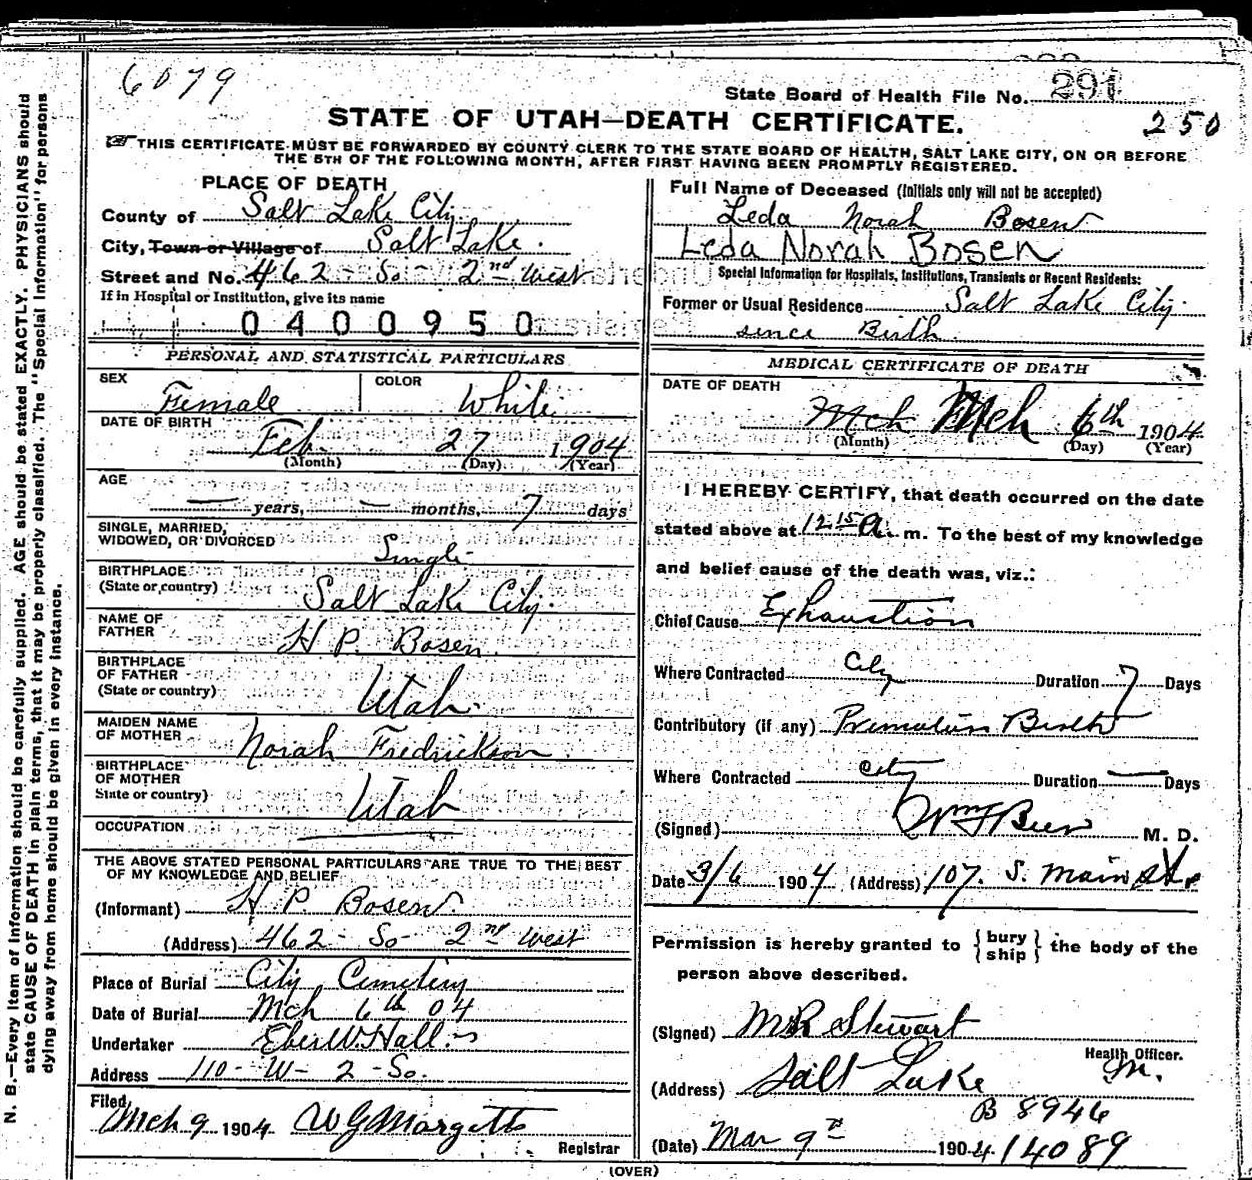 6079
State Board of Health File No. 291
STATE OF UTAH—DEATH CERTIFICATE.
250
THIS CERTIFICATE MUST BE FORWARDED BY COUNTY CLERK TO THE STATE BOARD OF HEALTH, SALT LAKE CITY, ON OR BEFORE
THE 5TH OF THE FOLLOWING MONTH, AFTER FIRST HAVING BEEN PROMPTLY REGISTERED.
PLACE OF DEATH
County of Salt Lake City
City, Town or Village of Salt Lake.
Street and No. 462 So. 2nd West
If in Hospital or Institution, give its name
0400950
Full Name of Deceased (Initials only will not be accepted)
Leda Norah Bosen
Leda Norah Bosen
Special Information for Hospitals, Institutions, Transients or Recent Residents:
Former or Usual Residence Salt Lake City
since Birth.
PERSONAL AND STATISTICAL PARTICULARS
SEX Female COLOR White
DATE OF BIRTH
Feb. 27 1904
(Month) (Day) (Year)
AGE
— years, — months, 7 days
SINGLE, MARRIED,
WIDOWED, OR DIVORCED Single
BIRTHPLACE
(State or country) Salt Lake City.
NAME OF
FATHER H P. Bosen
BIRTHPLACE
OF FATHER
(State or country) Utah.
MAIDEN NAME
OF MOTHER Norah Fredrickson
BIRTHPLACE
OF MOTHER
State or country) Utah
OCCUPATION
THE ABOVE STATED PERSONAL PARTICULARS ARE TRUE TO THE BEST
OF MY KNOWLEDGE AND BELIEF
(Informant) H P. Bosen.
(Address) 462 - So - 2nd West
Place of Burial City Cemetery
Date of Burial Mch 6th 04
Undertaker Eber W. Hall
Address 110 - W - 2 - So.
Filed
Mch 9 1904 W G Margetts
Registrar
MEDICAL CERTIFICATE OF DEATH
DATE OF DEATH
Mch Mch 6th 1904
(Month) (Day) (Year)
I HEREBY CERTIFY, that death occurred on the date
stated above at 12 15 A. m. To the best of my knowledge
and belief cause of the death was, viz.:
Chief Cause Exhaustion
Where Contracted City Duration 7 Days
Contributory (if any) Premature Birth
Where Contracted City Duration — Days
(Signed) Wm F Beer M. D.
Date 3/6 1904 (Address) 107. S. Main St
Permission is hereby granted to { bury ship } the body of the
person above described.
(Signed) M R Stewart
Health Officer.
(Address) Salt Lake M.
B 8946
(Date) Mar 9th 1904 14089
(OVER)
N. B.—Every item of information should be carefully supplied. AGE should be stated EXACTLY. PHYSICIANS should
state CAUSE OF DEATH in plain terms, that it may be properly classified. The "Special Information" for persons
dying away from home should be given in every instance.